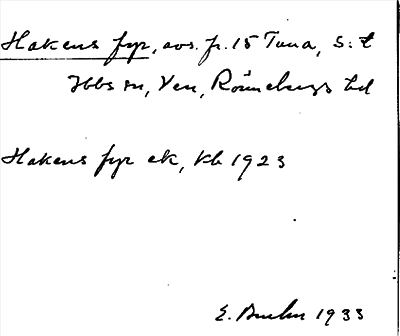 Hakens fyr, avs. fr. 15 Tuna, S:t
Ibbs sn, Ven, Rönnebergs hd
Hakens fyr ek, Kb 1923
E. 1933